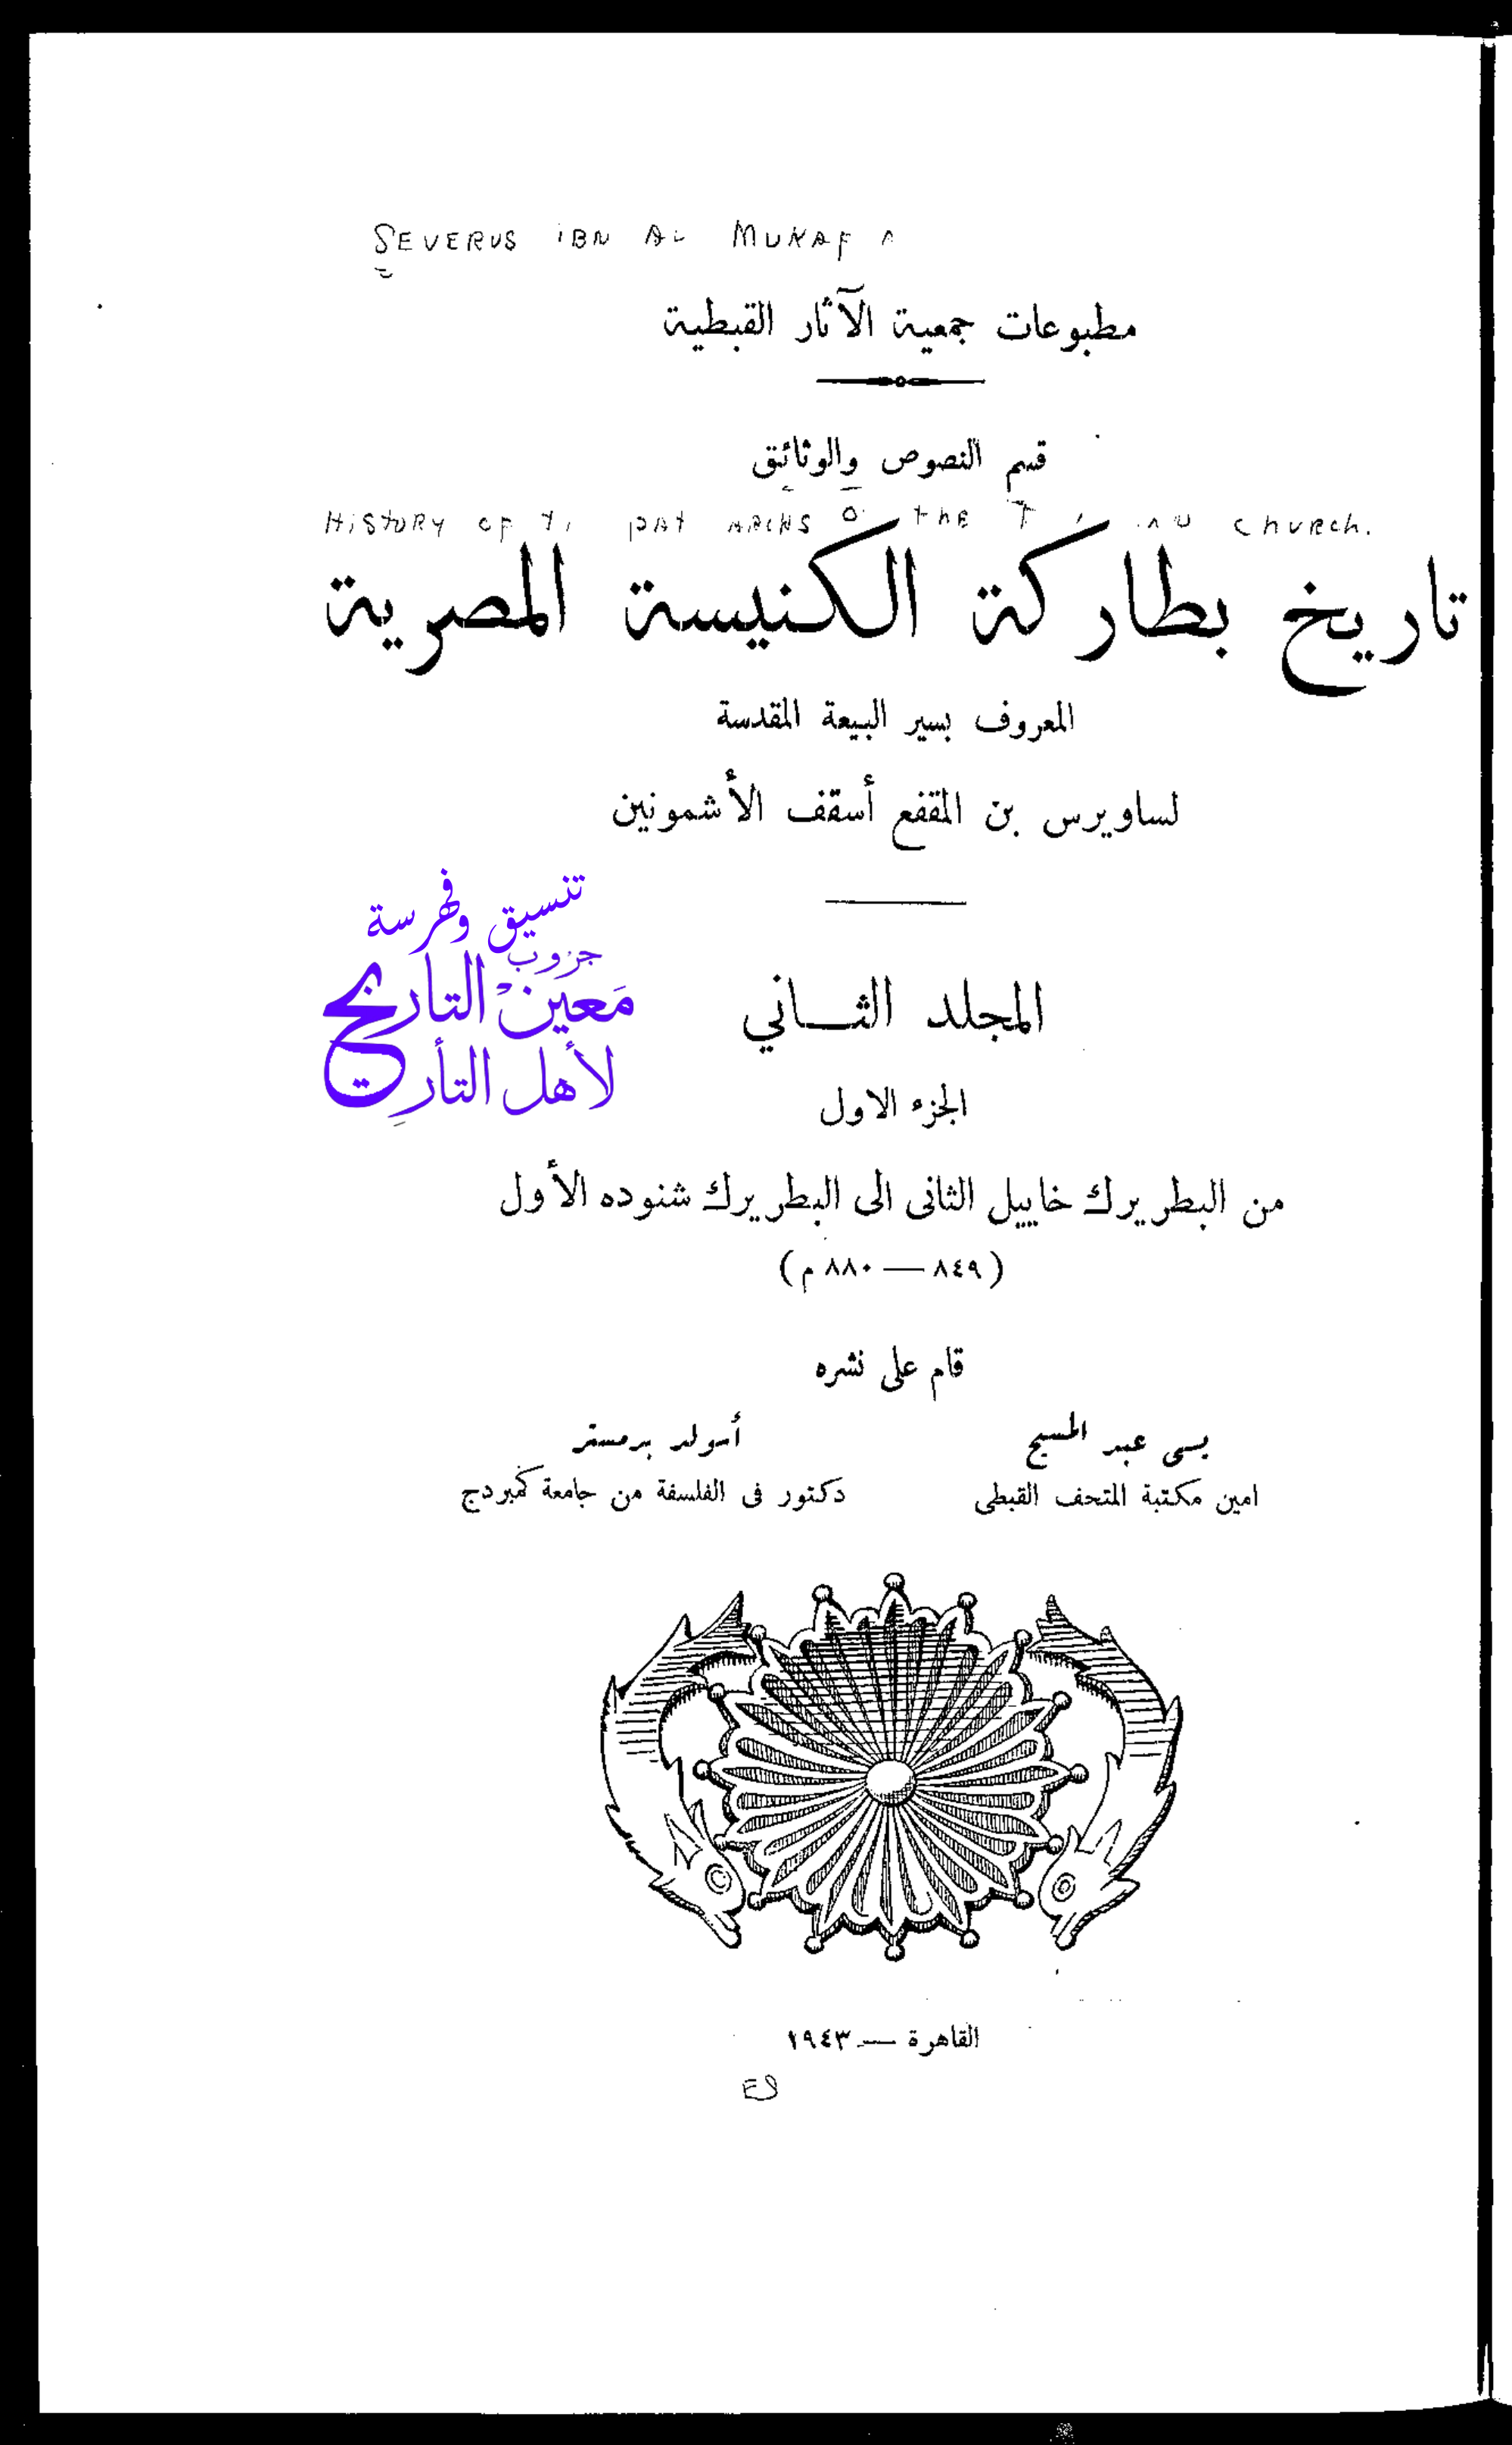 SEVERUS IBN AL MUKAF
مطبوعات جمعية الآثار القبطية
قسم النصوص والوثائق
HISTORY OF pat ARCHS the CHURCH.
تاريخ بطاركة الكنيسة المصرية
المعروف بسير البيعة المقدسة
لساويرس بن المقفع أسقف الأشمونين
تنسيق وفهرسة
جروب
مَعين التاريخ
لأهل التأريخ
المجلد الثاني
الجزء الاول
من البطريرك خاييل الثانى الى البطريرك شنوده الأول
(٨٤٩ — ٨٨٠ م)
قام على نشره
يسى عبد المسيح
امين مكتبة المتحف القبطى
أسولد برمستر
دكتور فى الفلسفة من جامعة كمبردج
القاهرة — ١٩٤٣